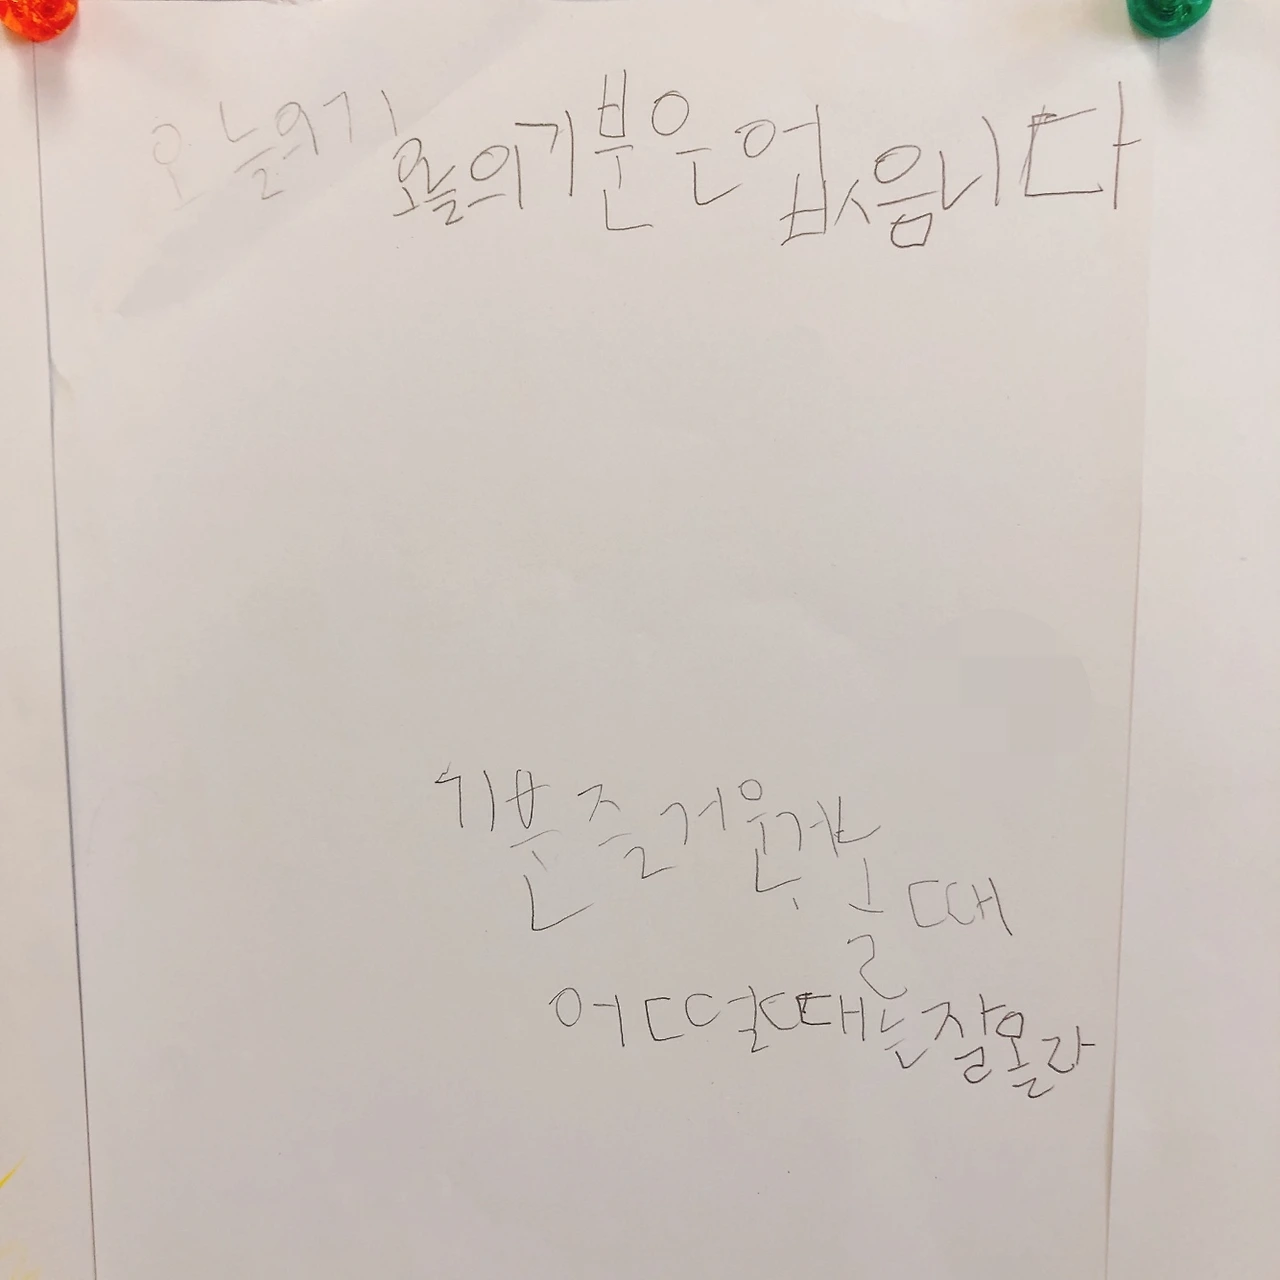 오늘의기
오늘의기분은 없습니다
기분 즐거운거
놀 때
어떨때는 잘몰라